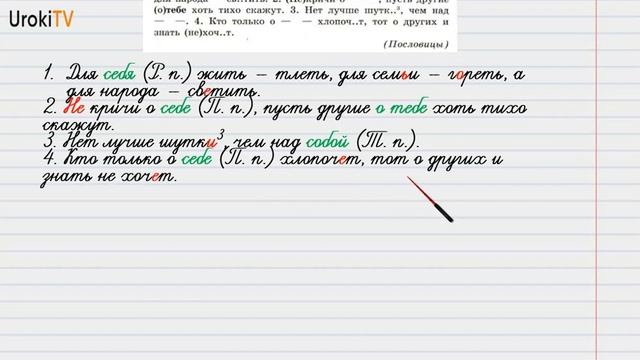 UrokiTV
(о)тебе хоть тихо скажут. 3. Нет лучше шутк..³, чем над
— —. 4. Кто только о — — хлопоч..т, тот о других и
знать (не)хоч..т.
(Пословицы)
1. Для себя (Р. п.) жить – тлеть, для семьи – гореть, а
для народа – светить.
2. Не кричи о себе (П. п.), пусть другие о тебе хоть тихо
скажут.
3. Нет лучше шутки³, чем над собой (Т. п.).
4. Кто только о себе (П. п.) хлопочет, тот о других и
знать не хочет.